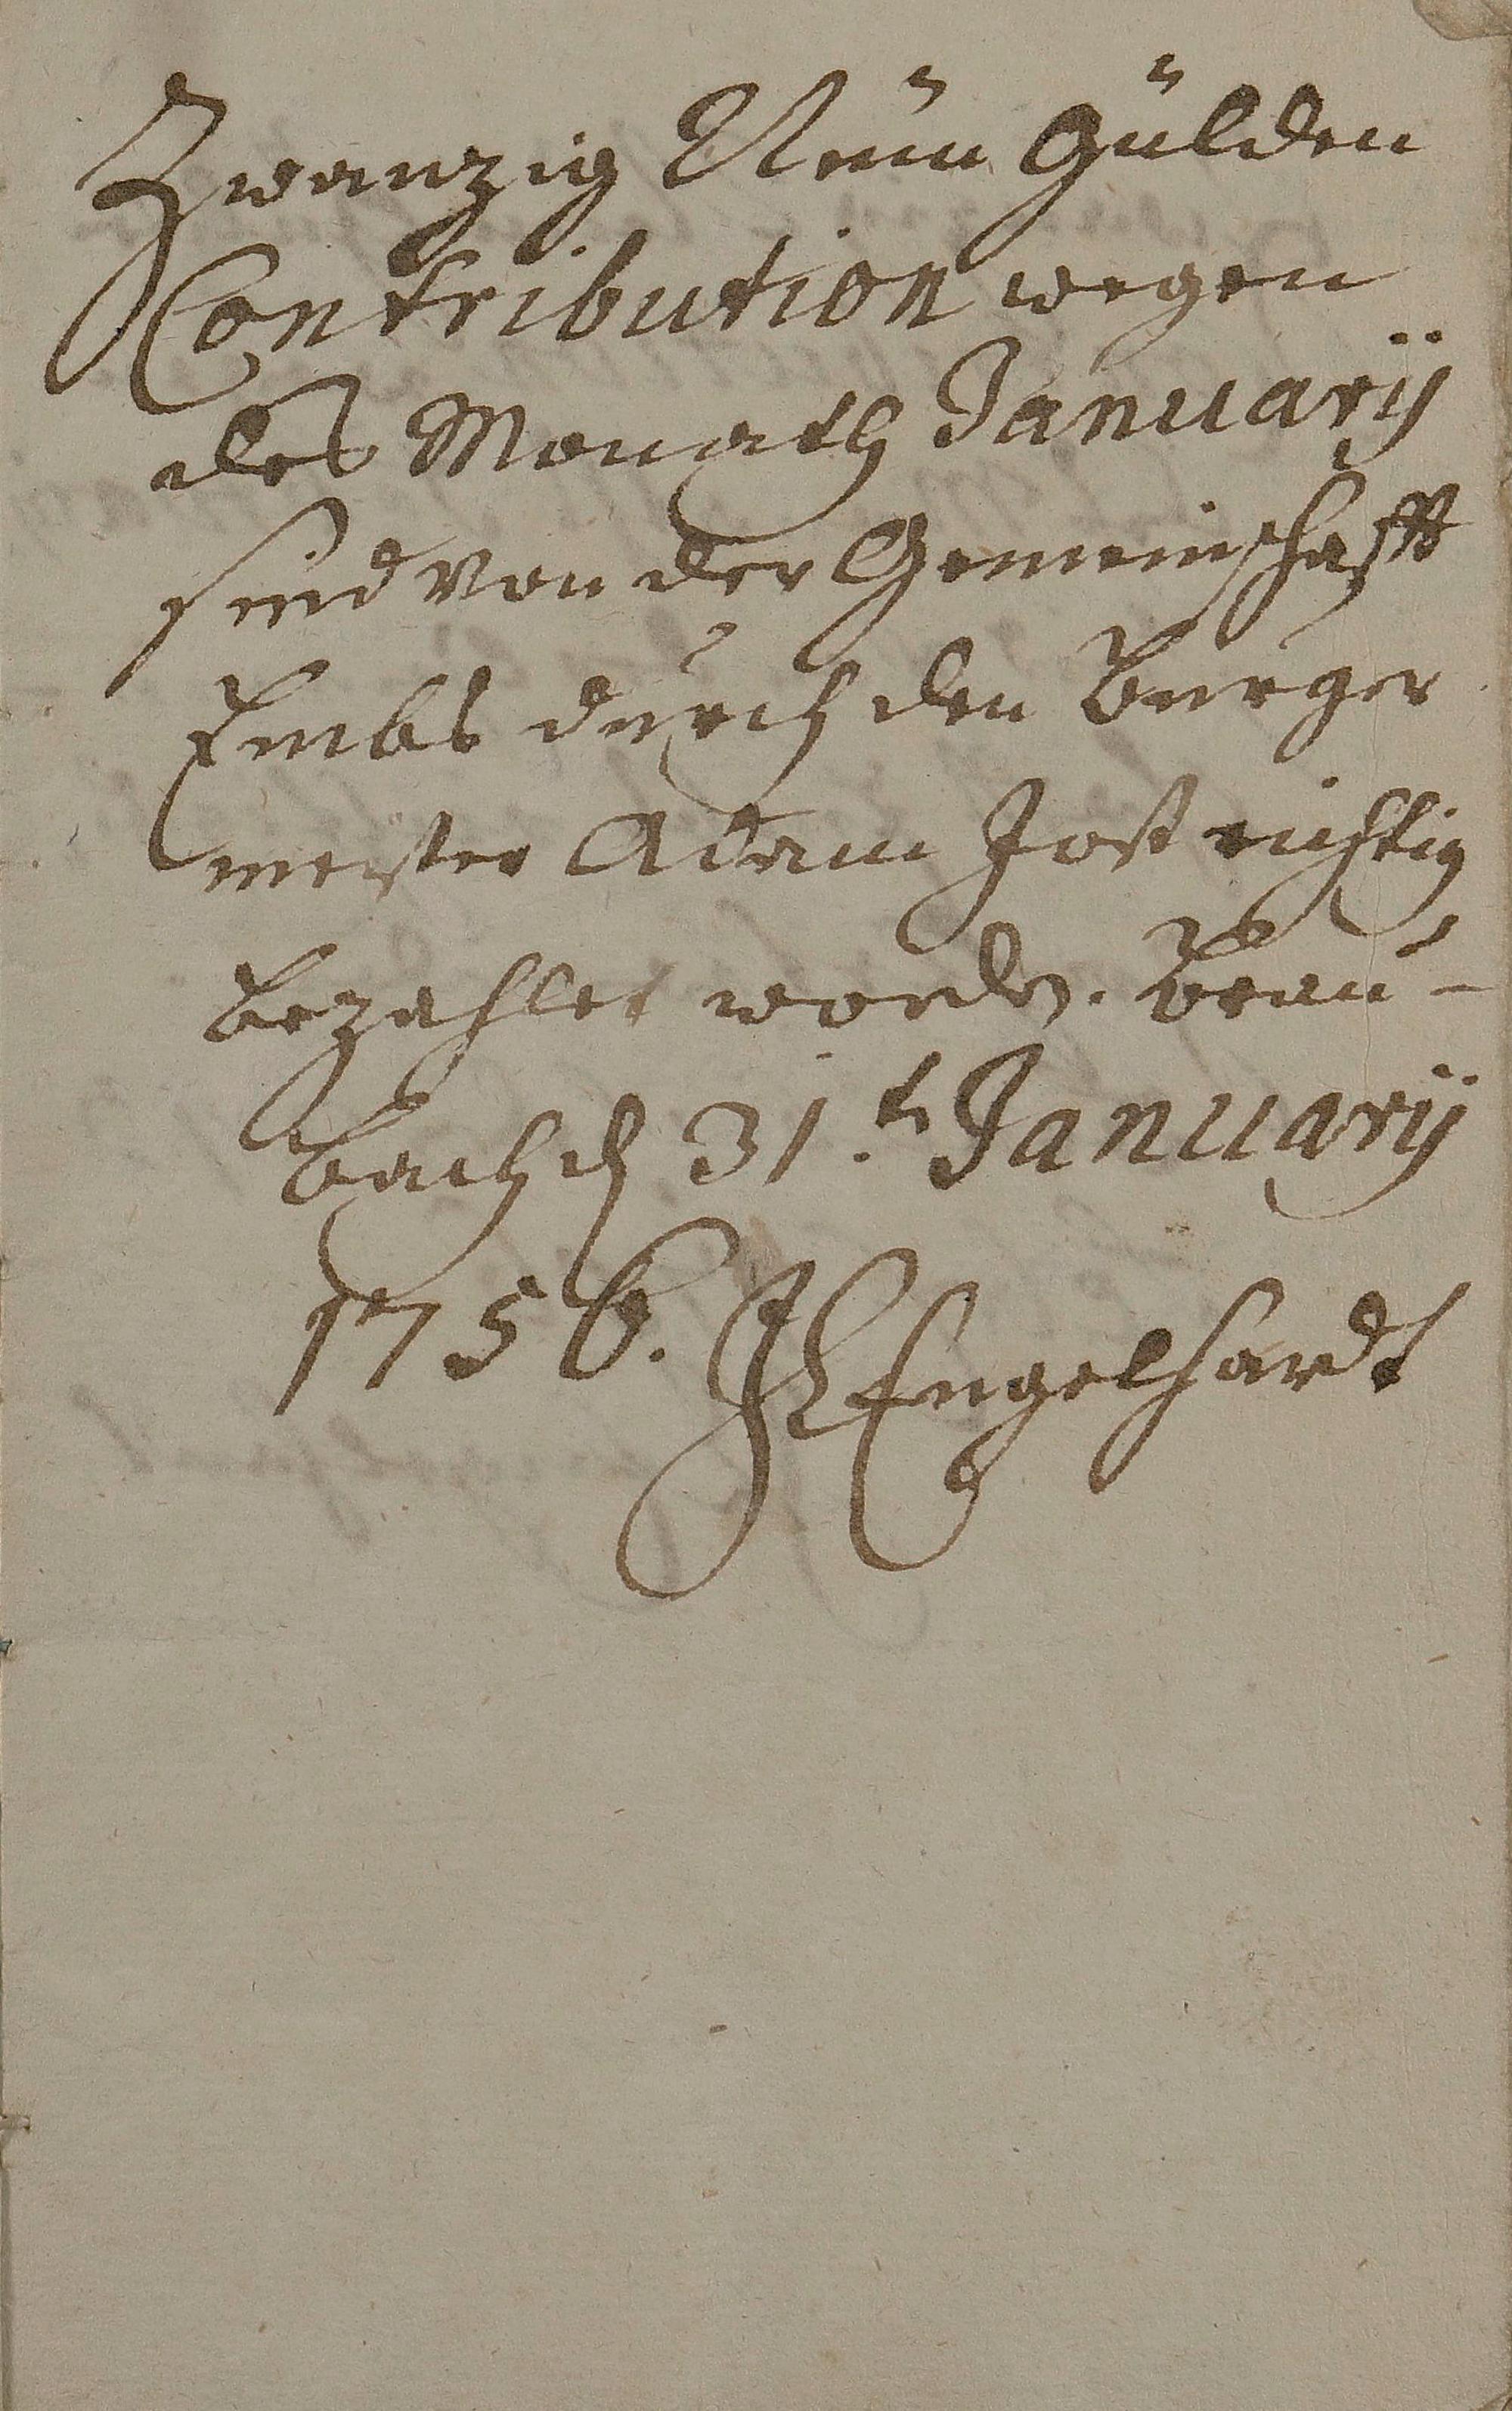 Zwanzig Neün Gülden
Contribution wegen
des Monath Januarÿ
sind von der Gemeinschafft
Embs durch den Burger
meister Adam Jost richtig
bezahlet worden. Brau-
bach d 31.t Januarÿ
1756. JHEngelhardt